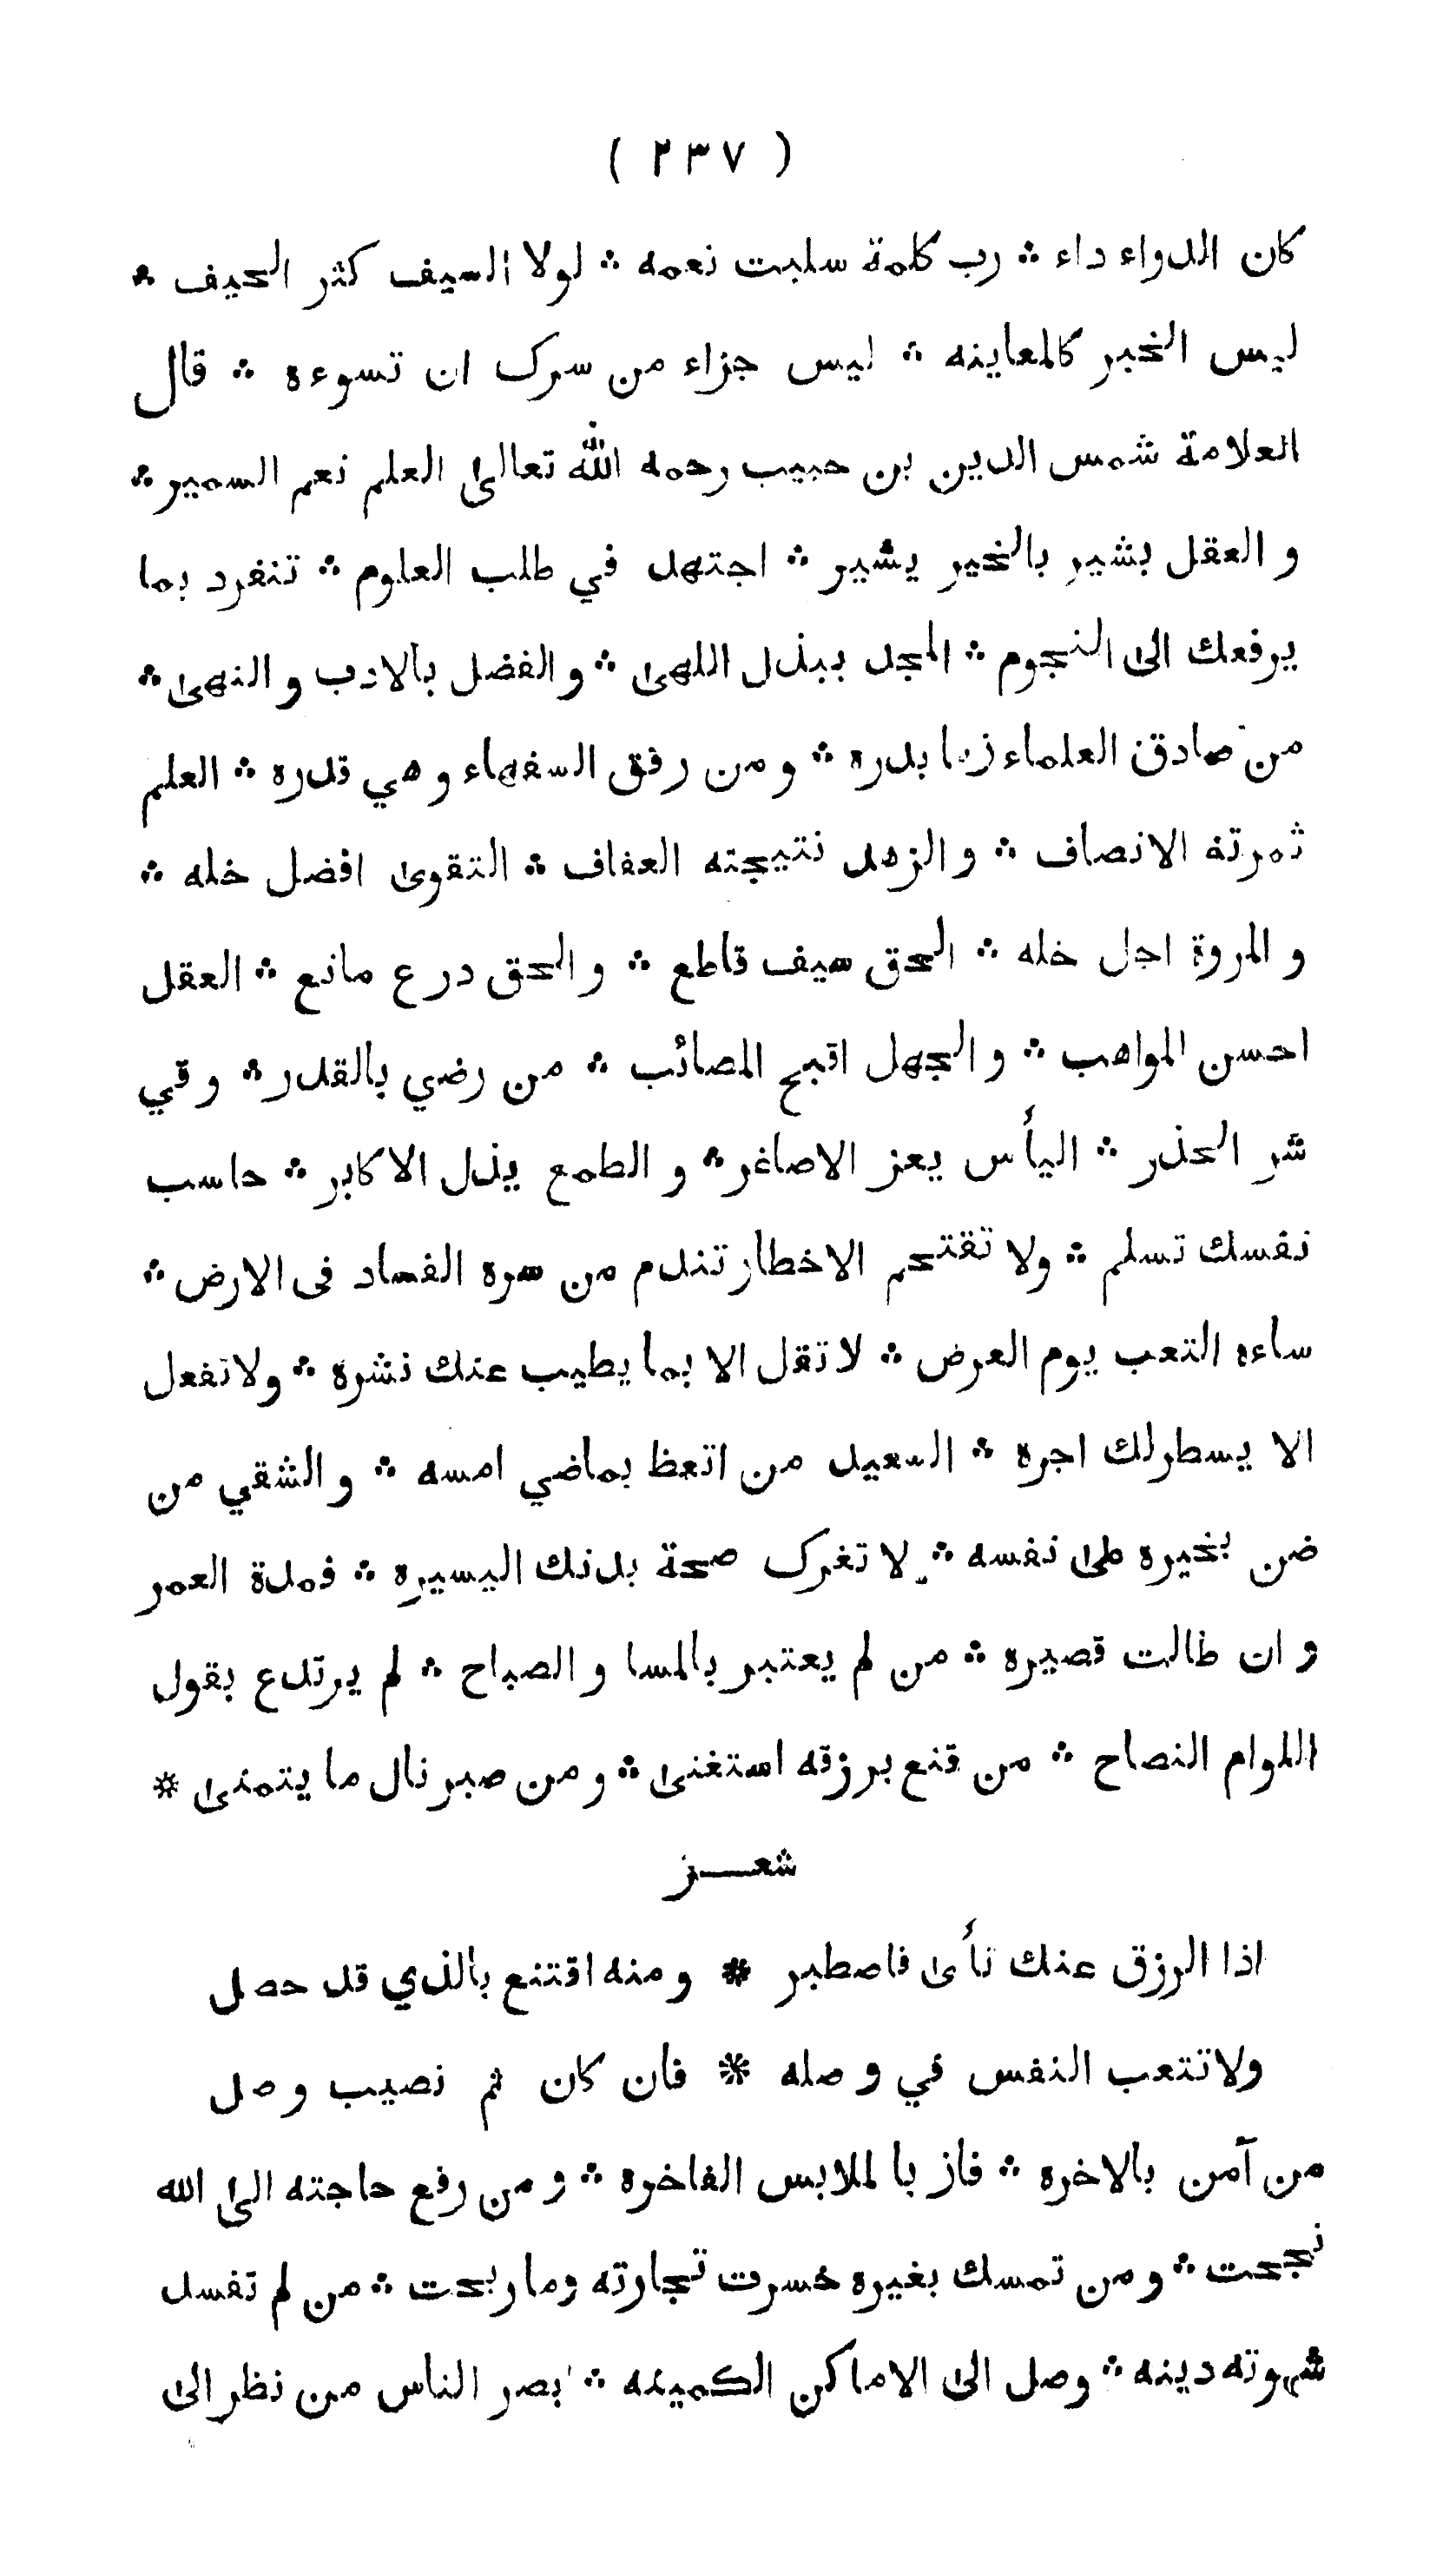 ( ٢٣٧ )
كان الدواء داء ⁂ رب كلمة سلبت نعمه ⁂ لولا السيف كثر الحيف ⁂
ليس الخبر كالمعاينه ⁂ ليس جزاء من سرك ان تسوءه ⁂ قال
العلامة شمس الدين بن حبيب رحمه الله تعالى العلم نعم السمير ⁂
و العقل بشير بالخير يشير ⁂ اجتهد في طلب العلوم ⁂ تنفرد بما
يرفعك الى النجوم ⁂ المجد ببذل اللهى ⁂ و الفضل بالادب و النهى ⁂
من صادق العلماء زها بدره ⁂ و من رفق السفهاء و هي قدره ⁂ العلم
ثمرته الانصاف ⁂ و الزهد نتيجته العفاف ⁂ التقوى افضل خله ⁂
و المروة اجل خله ⁂ الحق سيف قاطع ⁂ و الحق درع مانع ⁂ العقل
احسن المواهب ⁂ و الجهل اقبح المصائب ⁂ من رضي بالقدر ⁂ وقي
شر الحذر ⁂ اليأس يعز الاصاغر ⁂ و الطمع يذل الاكابر ⁂ حاسب
نفسك تسلم ⁂ ولا تقتحم الاخطار تندم من سره الفساد فى الارض ⁂
ساءه التعب يوم العرض ⁂ لا تقل الا بما يطيب عنك نشره ⁂ ولا تفعل
الا يسطر لك اجره ⁂ السعيد من اتعظ بماضي امسه ⁂ و الشقي من
ضن بخيره على نفسه ⁂ لا تغرك صحة بدنك اليسيره ⁂ فمدة العمر
و ان طالت قصيره ⁂ من لم يعتبر بالمسا و الصباح ⁂ لم يرتدع بقول
اللوام النصاح ⁂ من قنع برزقه استغنى ⁂ و من صبر نال ما يتمنى *
شعـــر
اذا الرزق عنك نأى فاصطبر * و منه اقتنع بالذي قد حصل
ولا تتعب النفس في وصله * فان كان ثم نصيب وصل
من آمن بالاخره ⁂ فاز با لملابس الفاخره ⁂ و من رفع حاجته الى الله
نجحت ⁂ و من تمسك بغيره خسرت تجارته وما ربحت ⁂ من لم تفسد
شهوته دينه ⁂ وصل الى الاماكن الكمينه ⁂ ابصر الناس من نظر الى